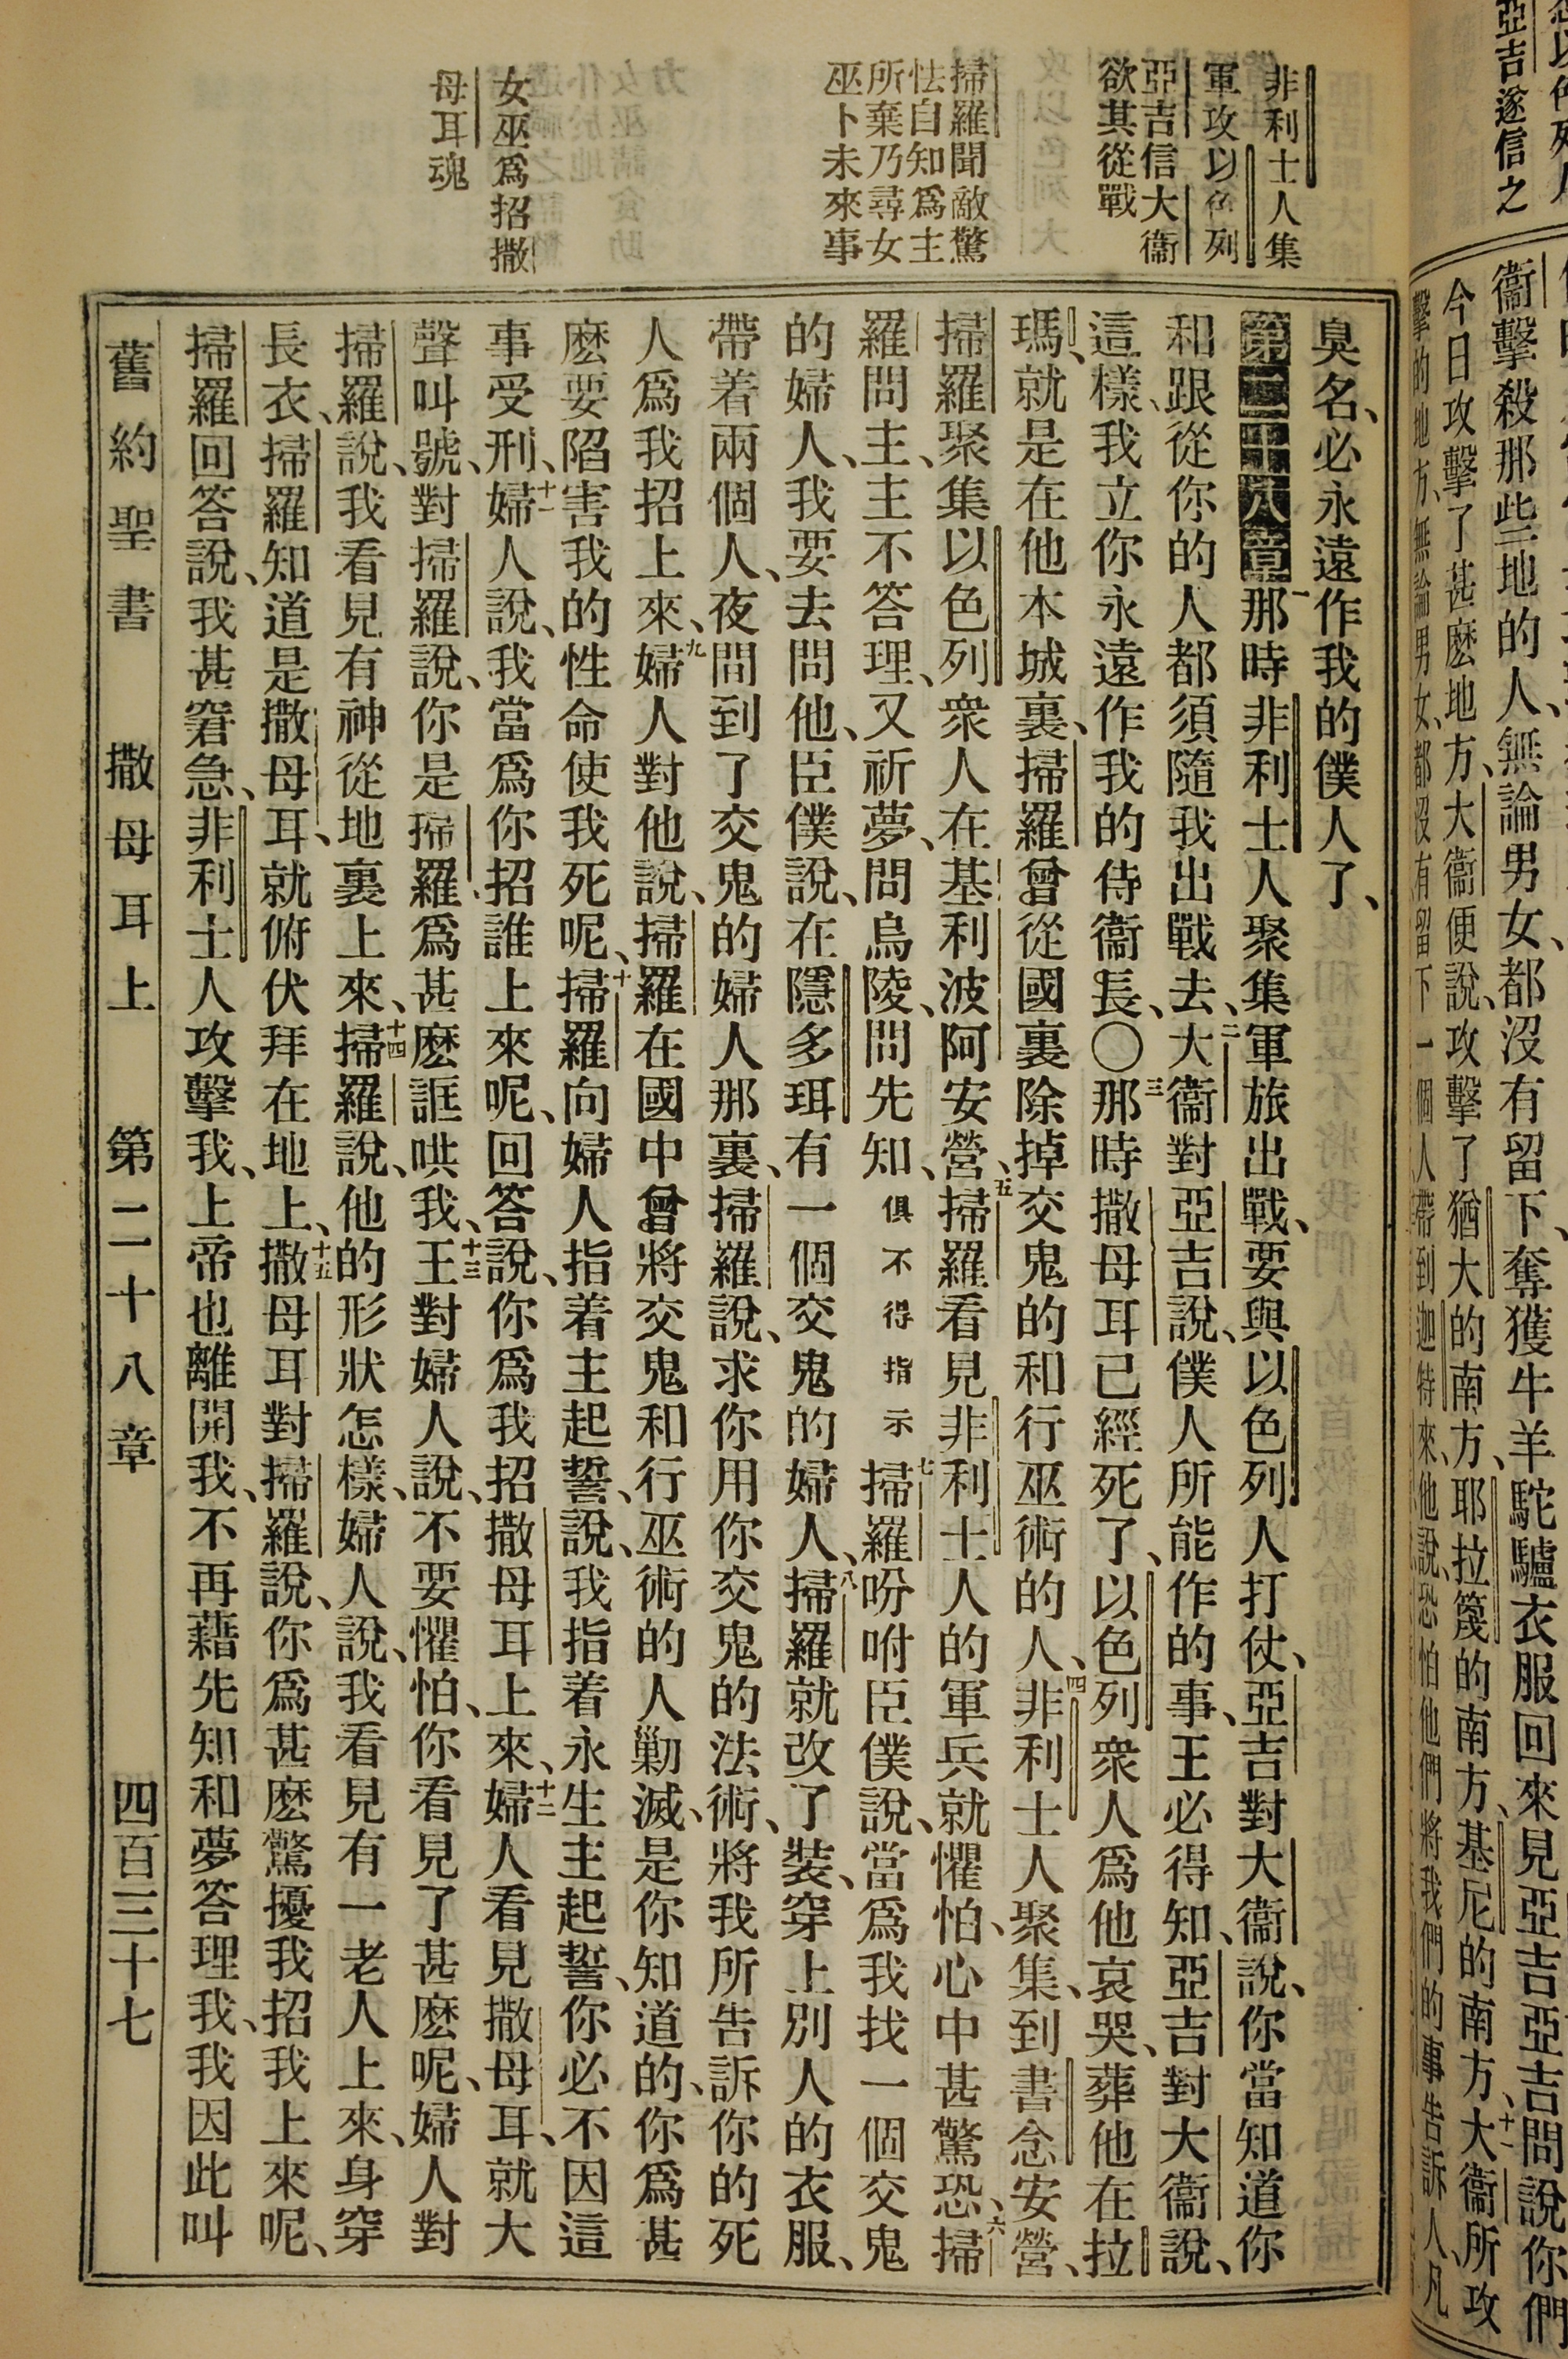 以色列人
亞吉遂信之
衞擊殺那些地的人、無論男女、都沒有留下、奪獲牛羊駝驢衣服回來見亞吉亞吉問說你們
今日攻擊了甚麽地方、大衞便說、攻擊了猶大的南方、耶拉篾的南方、基尼的南方、十一大衞所攻
擊的地方、無論男女、都沒有留下一個人帶到迦特來、他說、恐怕他們將我們的事告訴人、凡
非利士人集
軍攻以色列
亞吉信大衞
欲其從戰
掃羅聞敵驚
怯自知爲主
所棄乃尋女
巫卜未來事
女巫爲招撒
母耳魂
臭名、必永遠作我的僕人了、
第二十八章一那時非利士人聚集軍旅出戰、要與以色列人打仗、亞吉對大衞說、你當知道你
和跟從你的人都須隨我出戰去、二大衞對亞吉說、僕人所能作的事、王必得知、亞吉對大衞說、
這樣、我立你永遠作我的侍衞長、〇三那時撒母耳已經死了、以色列衆人爲他哀哭、葬他在拉
瑪、就是在他本城裏、掃羅曾從國裏除掉交鬼的和行巫術的人、四非利士人聚集、到書念安營、
掃羅聚集以色列衆人在基利波阿安營、五掃羅看見非利士人的軍兵就懼怕、心中甚驚恐、六掃
羅問主、主不答理、又祈夢、問烏陵、問先知、俱不得指示七掃羅吩咐臣僕說、當爲我找一個交鬼
的婦人、我要去問他、臣僕說、在隱多珥有一個交鬼的婦人、八掃羅就改了裝、穿上別人的衣服、
帶着兩個人、夜間到了交鬼的婦人那裏、掃羅說、求你用你交鬼的法術、將我所告訴你的死
人爲我招上來、九婦人對他說、掃羅在國中曾將交鬼和行巫術的人勦滅、是你知道的、你爲甚
麽要陷害我的性命使我死呢、十掃羅向婦人指着主起誓、說、我指着永生主起誓、你必不因這
事受刑、十一婦人說、我當爲你招誰上來呢、回答說、你爲我招撒母耳上來、十二婦人看見撒母耳、就大
聲叫號、對掃羅說、你是掃羅、爲甚麽誆哄我、十三王對婦人說、不要懼怕、你看見了甚麽呢、婦人對
掃羅說、我看見有神從地裏上來、十四掃羅說、他的形狀怎樣、婦人說、我看見有一老人上來、身穿
長衣、掃羅知道是撒母耳、就俯伏拜在地上、十五撒母耳對掃羅說、你爲甚麽驚擾我招我上來呢、
掃羅回答說、我甚窘急、非利士人攻擊我、上帝也離開我、不再藉先知和夢答理我、我因此叫
舊約聖書　撒母耳上　第二十八章　四百三十七